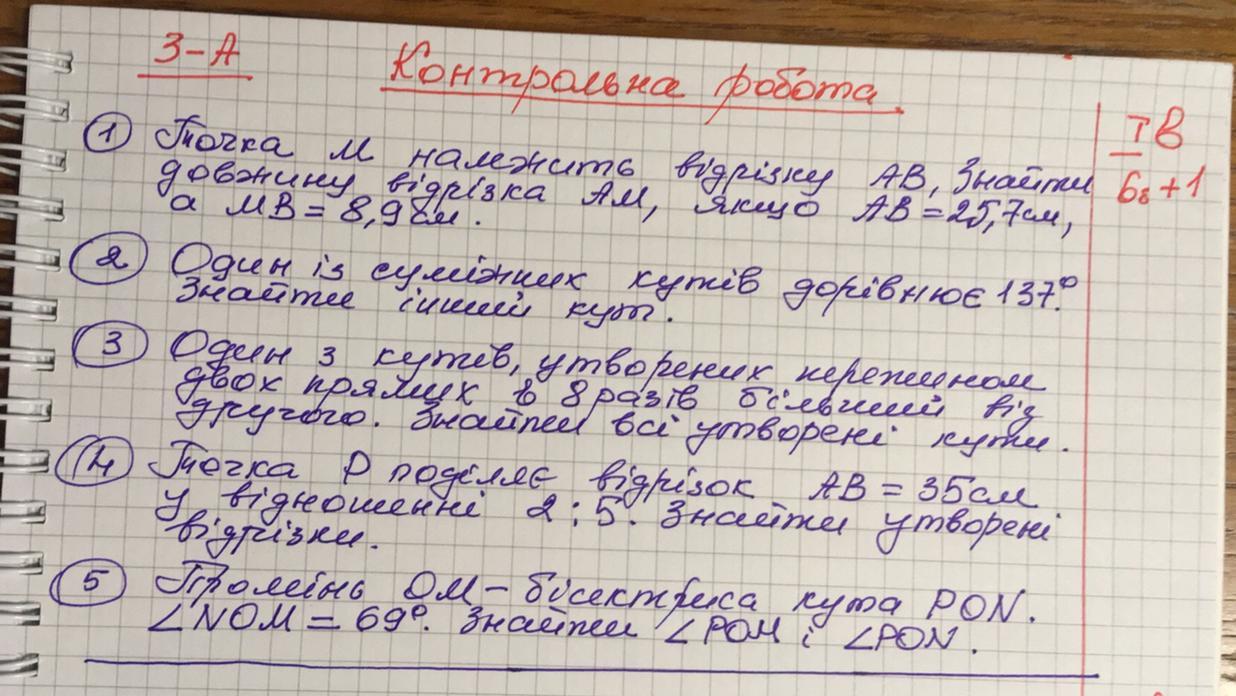 3-А
Контрольна робота.
І в
6 + 1
① Точка М належить відрізку АВ. Знайти
довжину відрізка АМ, якщо АВ = 25,7см,
а МВ = 8,9см.
② Один із суміжних кутів дорівнює 137°.
Знайти інший кут.
③ Один з кутів, утворених перетином
двох прямих в 8 разів більший від
другого. Знайти всі утворені кути.
④ Точка Р поділяє відрізок АВ = 35см
у відношенні 2 : 5. Знайти утворені
відрізки.
⑤ Промінь ОМ – бісектриса кута PON.
∠NOM = 69°. Знайти ∠POM і ∠PON.